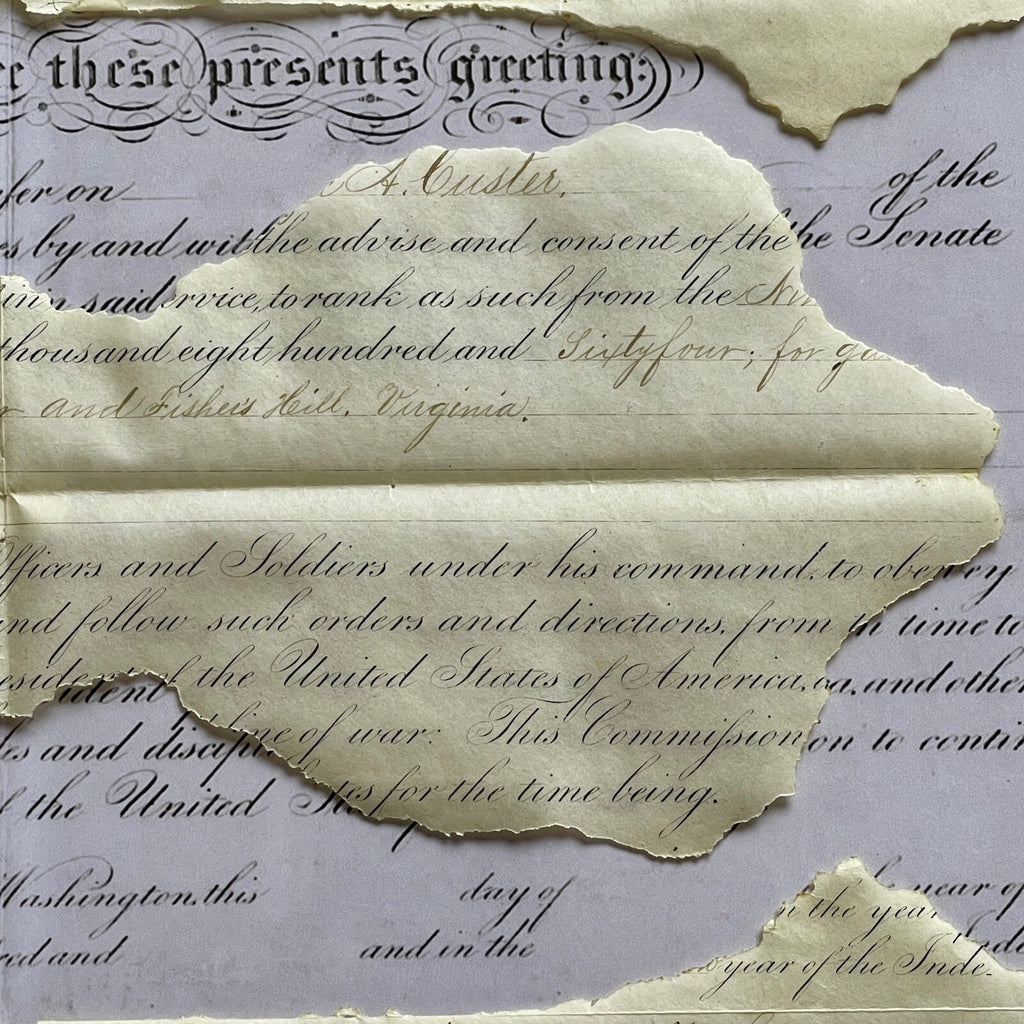 these presents greeting:
fer on A. Custer, of the
s by and with the advise and consent of the the Senate
in said rvice, to rank as such from the Nin
thousand eight hundred and Sixtyfour; for ga
r and Fishers Hill, Virginia.
fficers and Soldiers under his command, to obey
nd follow such orders and directions, from in time to
esident of the United States of America, ca, and other
les and discipline of war: This Commiſsion on to contin
f the United States for the time being.
Washington, this day of year of
n the year
red and and in the Inde
year of the Inde